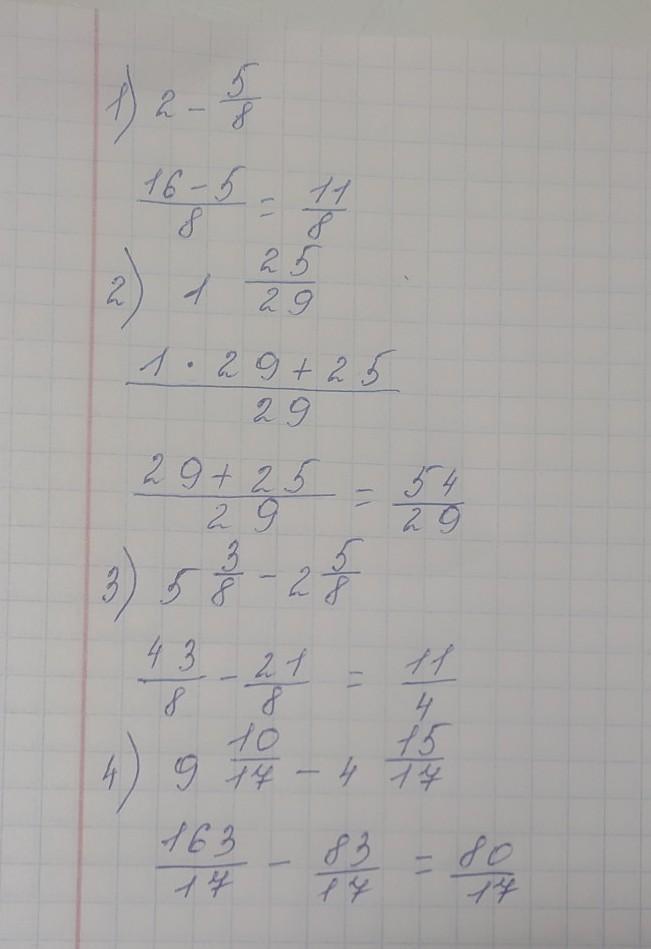 1) 2 - 5/8
16-5/8 = 11/8
2) 1 25/29
1·29+25/29
29+25/29 = 54/29
3) 5 3/8 - 2 5/8
43/8 - 21/8 = 11/4
4) 9 10/17 - 4 15/17
163/17 - 83/17 = 80/17